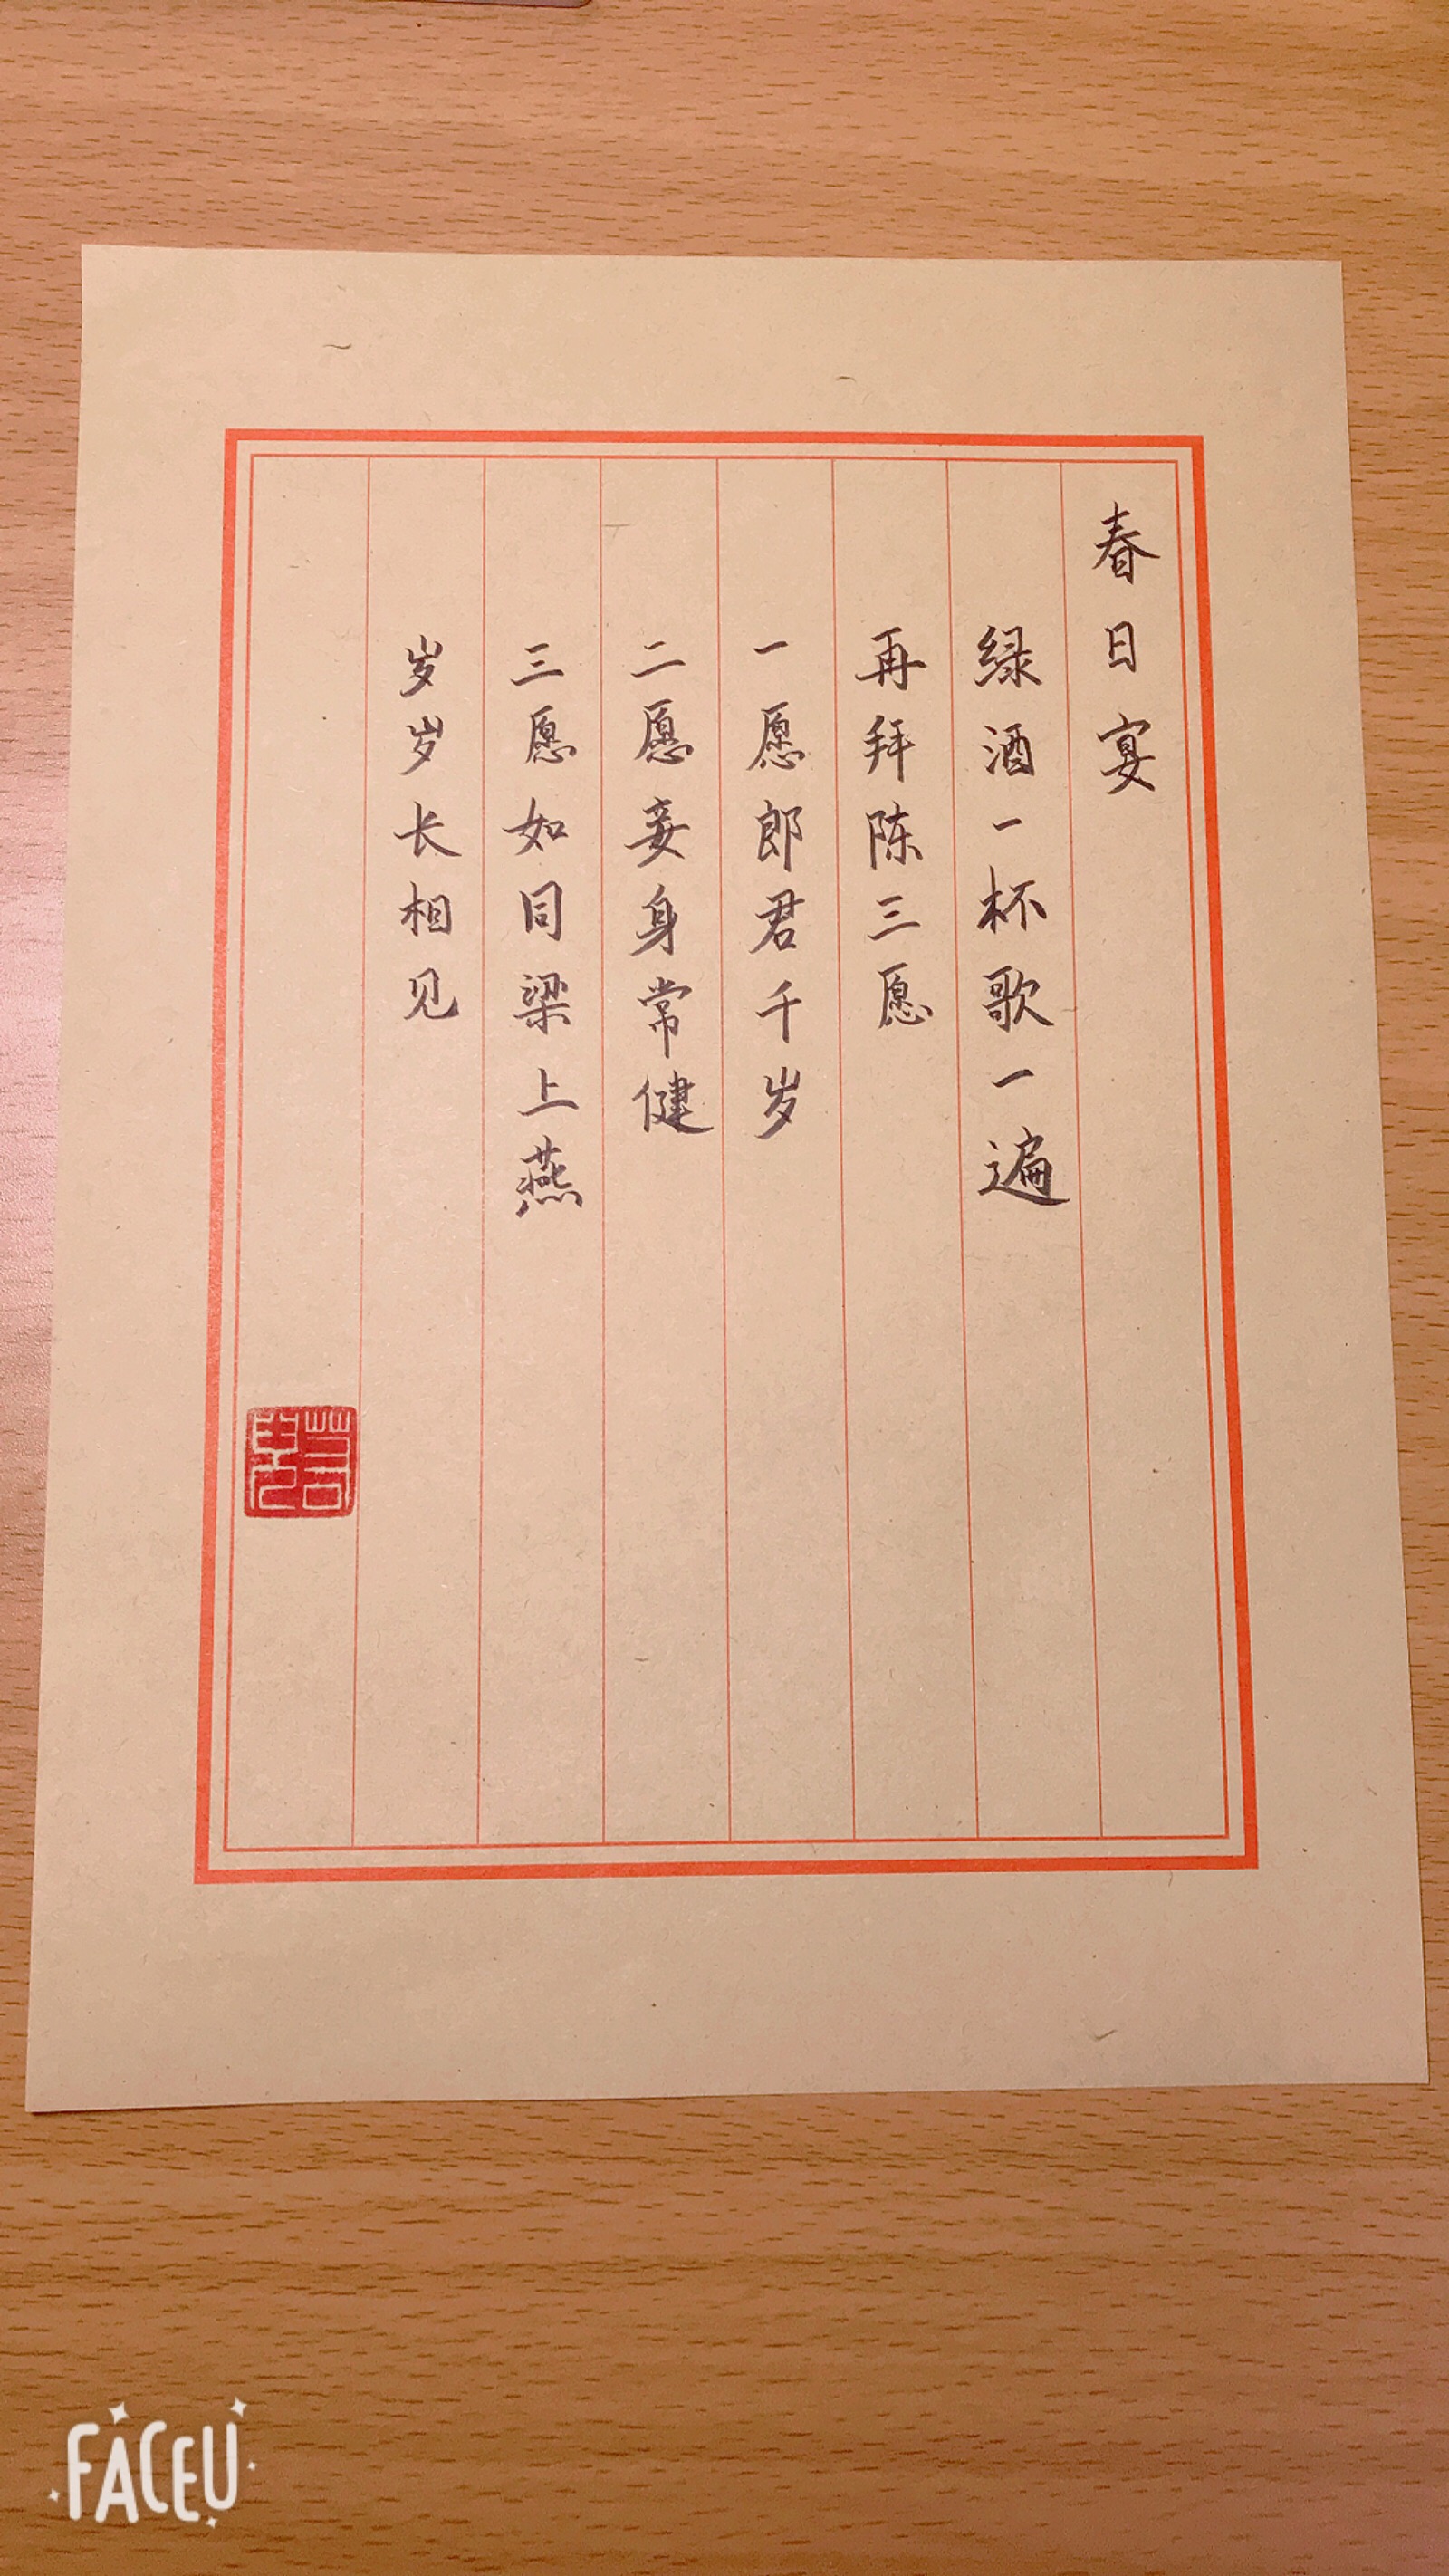 春日宴
绿酒一杯歌一遍
再拜陈三愿
一愿郎君千岁
二愿妾身常健
三愿如同梁上燕
岁岁长相见
FACEU